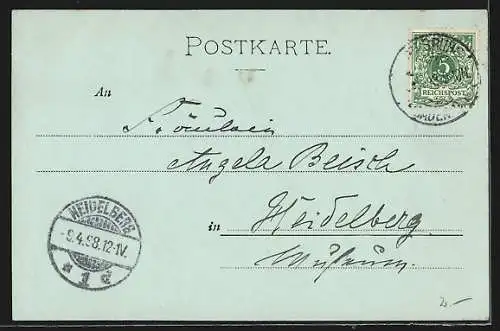 POSTKARTE.
5
REICHSPOST
An
Fräulein
Angela Beisch
in Heidelberg
Museum.
HEIDELBERG
-9.4.98.12-1V.
* 1 d
2.-